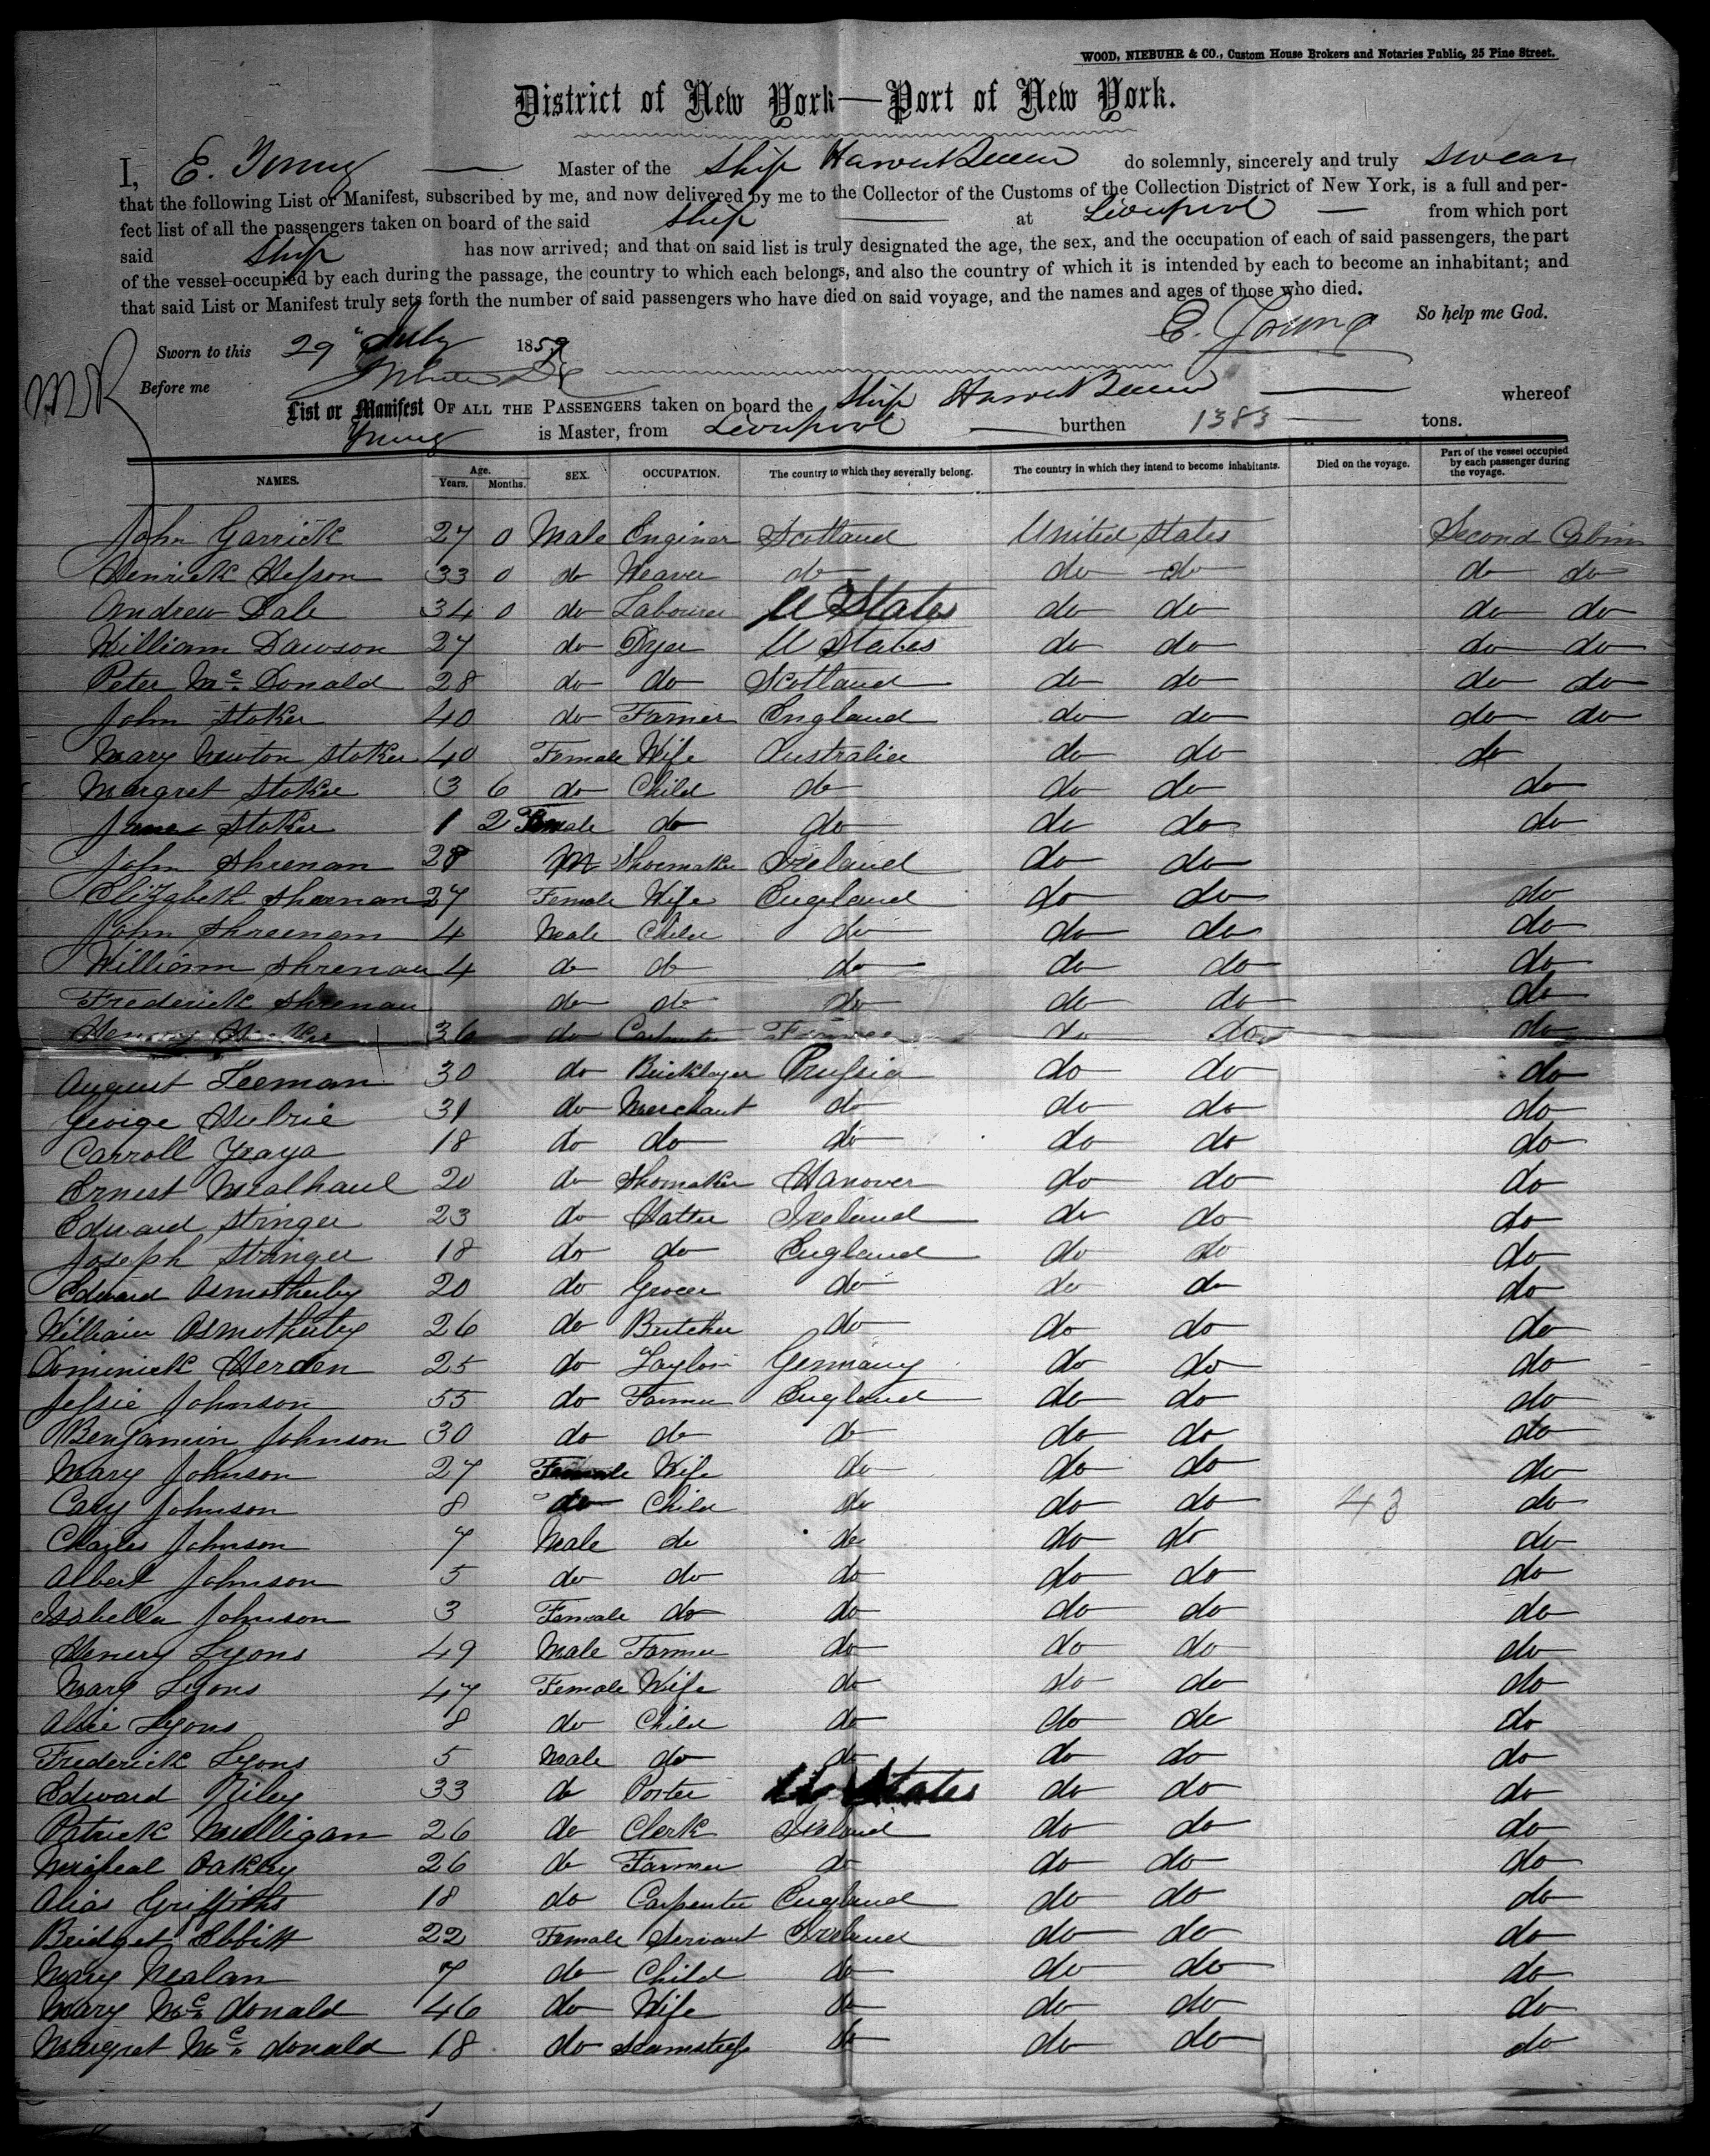 WOOD, NIEBUHR & CO., Custom House Brokers and Notaries Public, 25 Pine Street.
District of New York—Port of New York.
I, E. Young — Master of the Ship Harvest Queen do solemnly, sincerely and truly swear
that the following List or Manifest, subscribed by me, and now delivered by me to the Collector of the Customs of the Collection District of New York, is a full and per-
fect list of all the passengers taken on board of the said Ship — at Liverpool — from which port
said Ship has now arrived; and that on said list is truly designated the age, the sex, and the occupation of each of said passengers, the part
of the vessel occupied by each during the passage, the country to which each belongs, and also the country of which it is intended by each to become an inhabitant; and
that said List or Manifest truly sets forth the number of said passengers who have died on said voyage, and the names and ages of those who died.
So help me God.
E. Young
Sworn to this 29" July 1859
Before me
List or Manifest OF ALL THE PASSENGERS taken on board the Ship Harvest Queen — whereof
Young is Master, from Liverpool — burthen 1383 — tons.
NAMES. Age. Years. Months. SEX. OCCUPATION. The country to which they severally belong. The country in which they intend to become inhabitants. Died on the voyage. Part of the vessel occupied by each passenger during the voyage.
John Garrick 27 0 Male Enginer Scotland United States Second Cabin
Henrick Hesson 33 0 do Weaver do do do do do
Andrew Dale 34 0 do Labourer U States do do do do
William Dawson 27 do Dyer U States do do do do
Peter Mc Donald 28 do do Scotland do do do do
John Stoker 40 do Farmer England do do do do
Mary Newton Stoker 40 Female Wife Australia do do do
Margret Stoker 3 6 do Child do do do do
Stoker 1 2 Female do do do do do
John Shrenan 28 M Shoemaker Ireland do do
Elizabeth Shernan 27 Female Wife England do do do
John Shreenan 4 Male Child do do do do
William Shrenan 4 do do do do do do
Frederick Shrenan do do do do do do
Henery 36 do France do do do
August Teeman 30 do Bricklayer Prussia do do do
George Hulrie 31 do Merchant do do do do
Carroll Graya 18 do do do do do do
Ernest Mealhaul 20 do Shomaker Hanover do do do
Edward Stringer 23 do Hatter Ireland do do do
Joseph Stringer 18 do do England do do do
Edward Osmotherby 20 do Grocer do do do do
William Osmotherby 26 do Butcher do do do do
Dominick Herden 25 do Taylor Germany do do do
Jessie Johnson 55 do Farmer England do do do
Benjamin Johnson 30 do do do do do do
Mary Johnson 27 Female Wife do do do do
Cary Johnson 8 do Child do do do 43 do
Charles Johnson 7 Male do do do do do
Albert Johnson 5 do do do do do do
Isabella Johnson 3 Female do do do do do
Henery Lyons 49 Male Farmer do do do do
Mary Lyons 47 Female Wife do do do do
Alice Lyons 8 do Child do do do do
Frederick Lyons 5 Male do do do do do
Edward Riley 33 do Porter States do do do
Patrick Mulligan 26 do Clerk Ireland do do do
Micheal Oakley 26 do Farmer do do do do
Alias Griffiths 18 do Carpenter England do do do
Bridget Ebbitt 22 Female Servant Ireland do do do
Mary Nealan 7 do Child do do do do
Mary Mc donald 46 do Wife do do do do
Margret Mc donald 18 do Seamstress do do do do